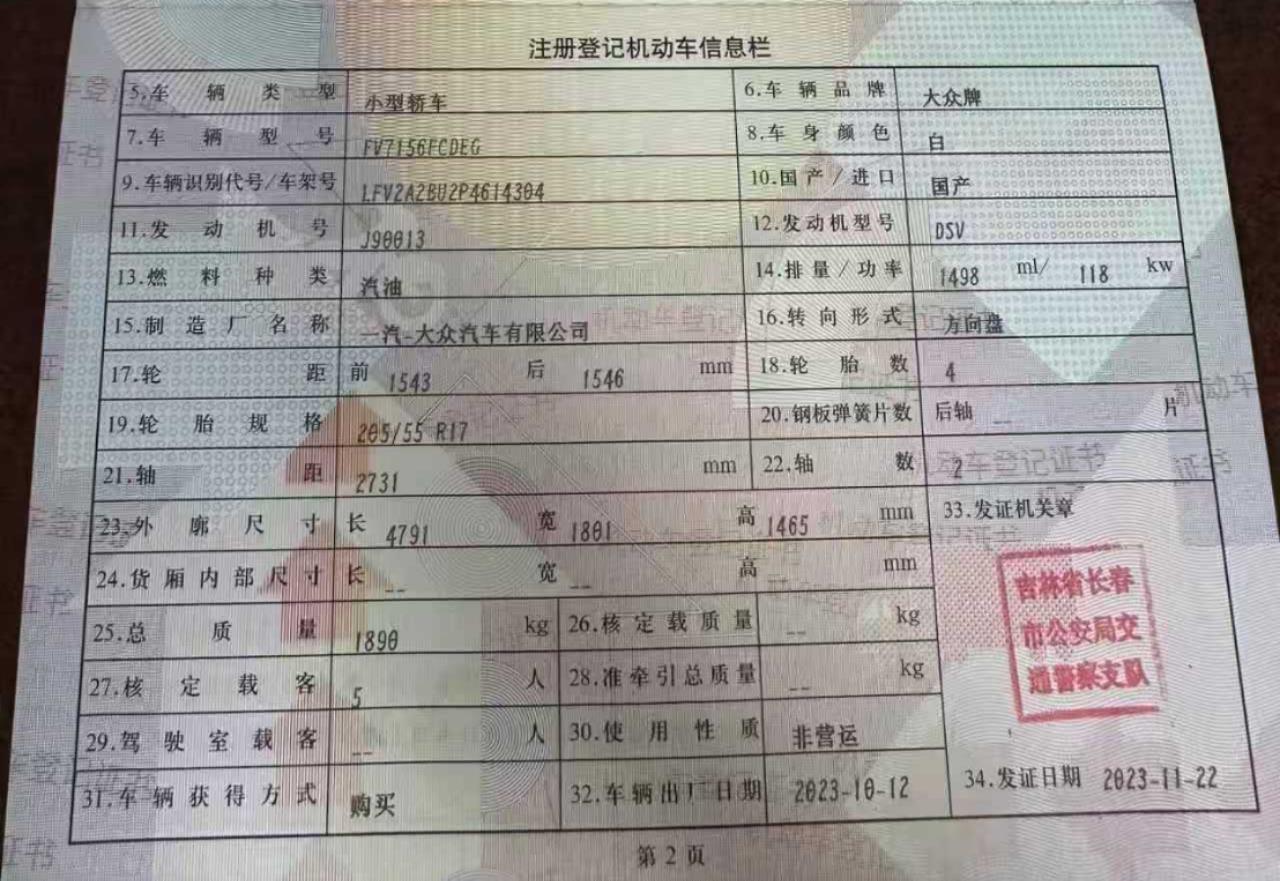 注册登记机动车信息栏
5.车辆类型 小型轿车 6.车辆品牌 大众牌
7.车辆型号 FV7156ECDEG 8.车身颜色 白
9.车辆识别代号/车架号 LFV2A2BU2P4614304 10.国产/进口 国产
11.发动机号 J90013 12.发动机型号 DSV
13.燃料种类 汽油 14.排量/功率 1498 ml/ 118 kw
15.制造厂名称 一汽-大众汽车有限公司 16.转向形式 方向盘
17.轮距 前 1543 后 1546 mm 18.轮胎数 4
19.轮胎规格 205/55 R17 20.钢板弹簧片数 后轴 -- 片
21.轴距 2731 mm 22.轴数 2
23.外廓尺寸 长 4791 宽 1801 高 1465 mm 33.发证机关章
24.货厢内部尺寸 长 -- 宽 -- 高 -- mm
吉林省长春
市公安局交
通警察支队
25.总质量 1890 kg 26.核定载质量 -- kg
27.核定载客 5 人 28.准牵引总质量 -- kg
29.驾驶室载客 -- 人 30.使用性质 非营运
31.车辆获得方式 购买 32.车辆出厂日期 2023-10-12 34.发证日期 2023-11-22
第2页